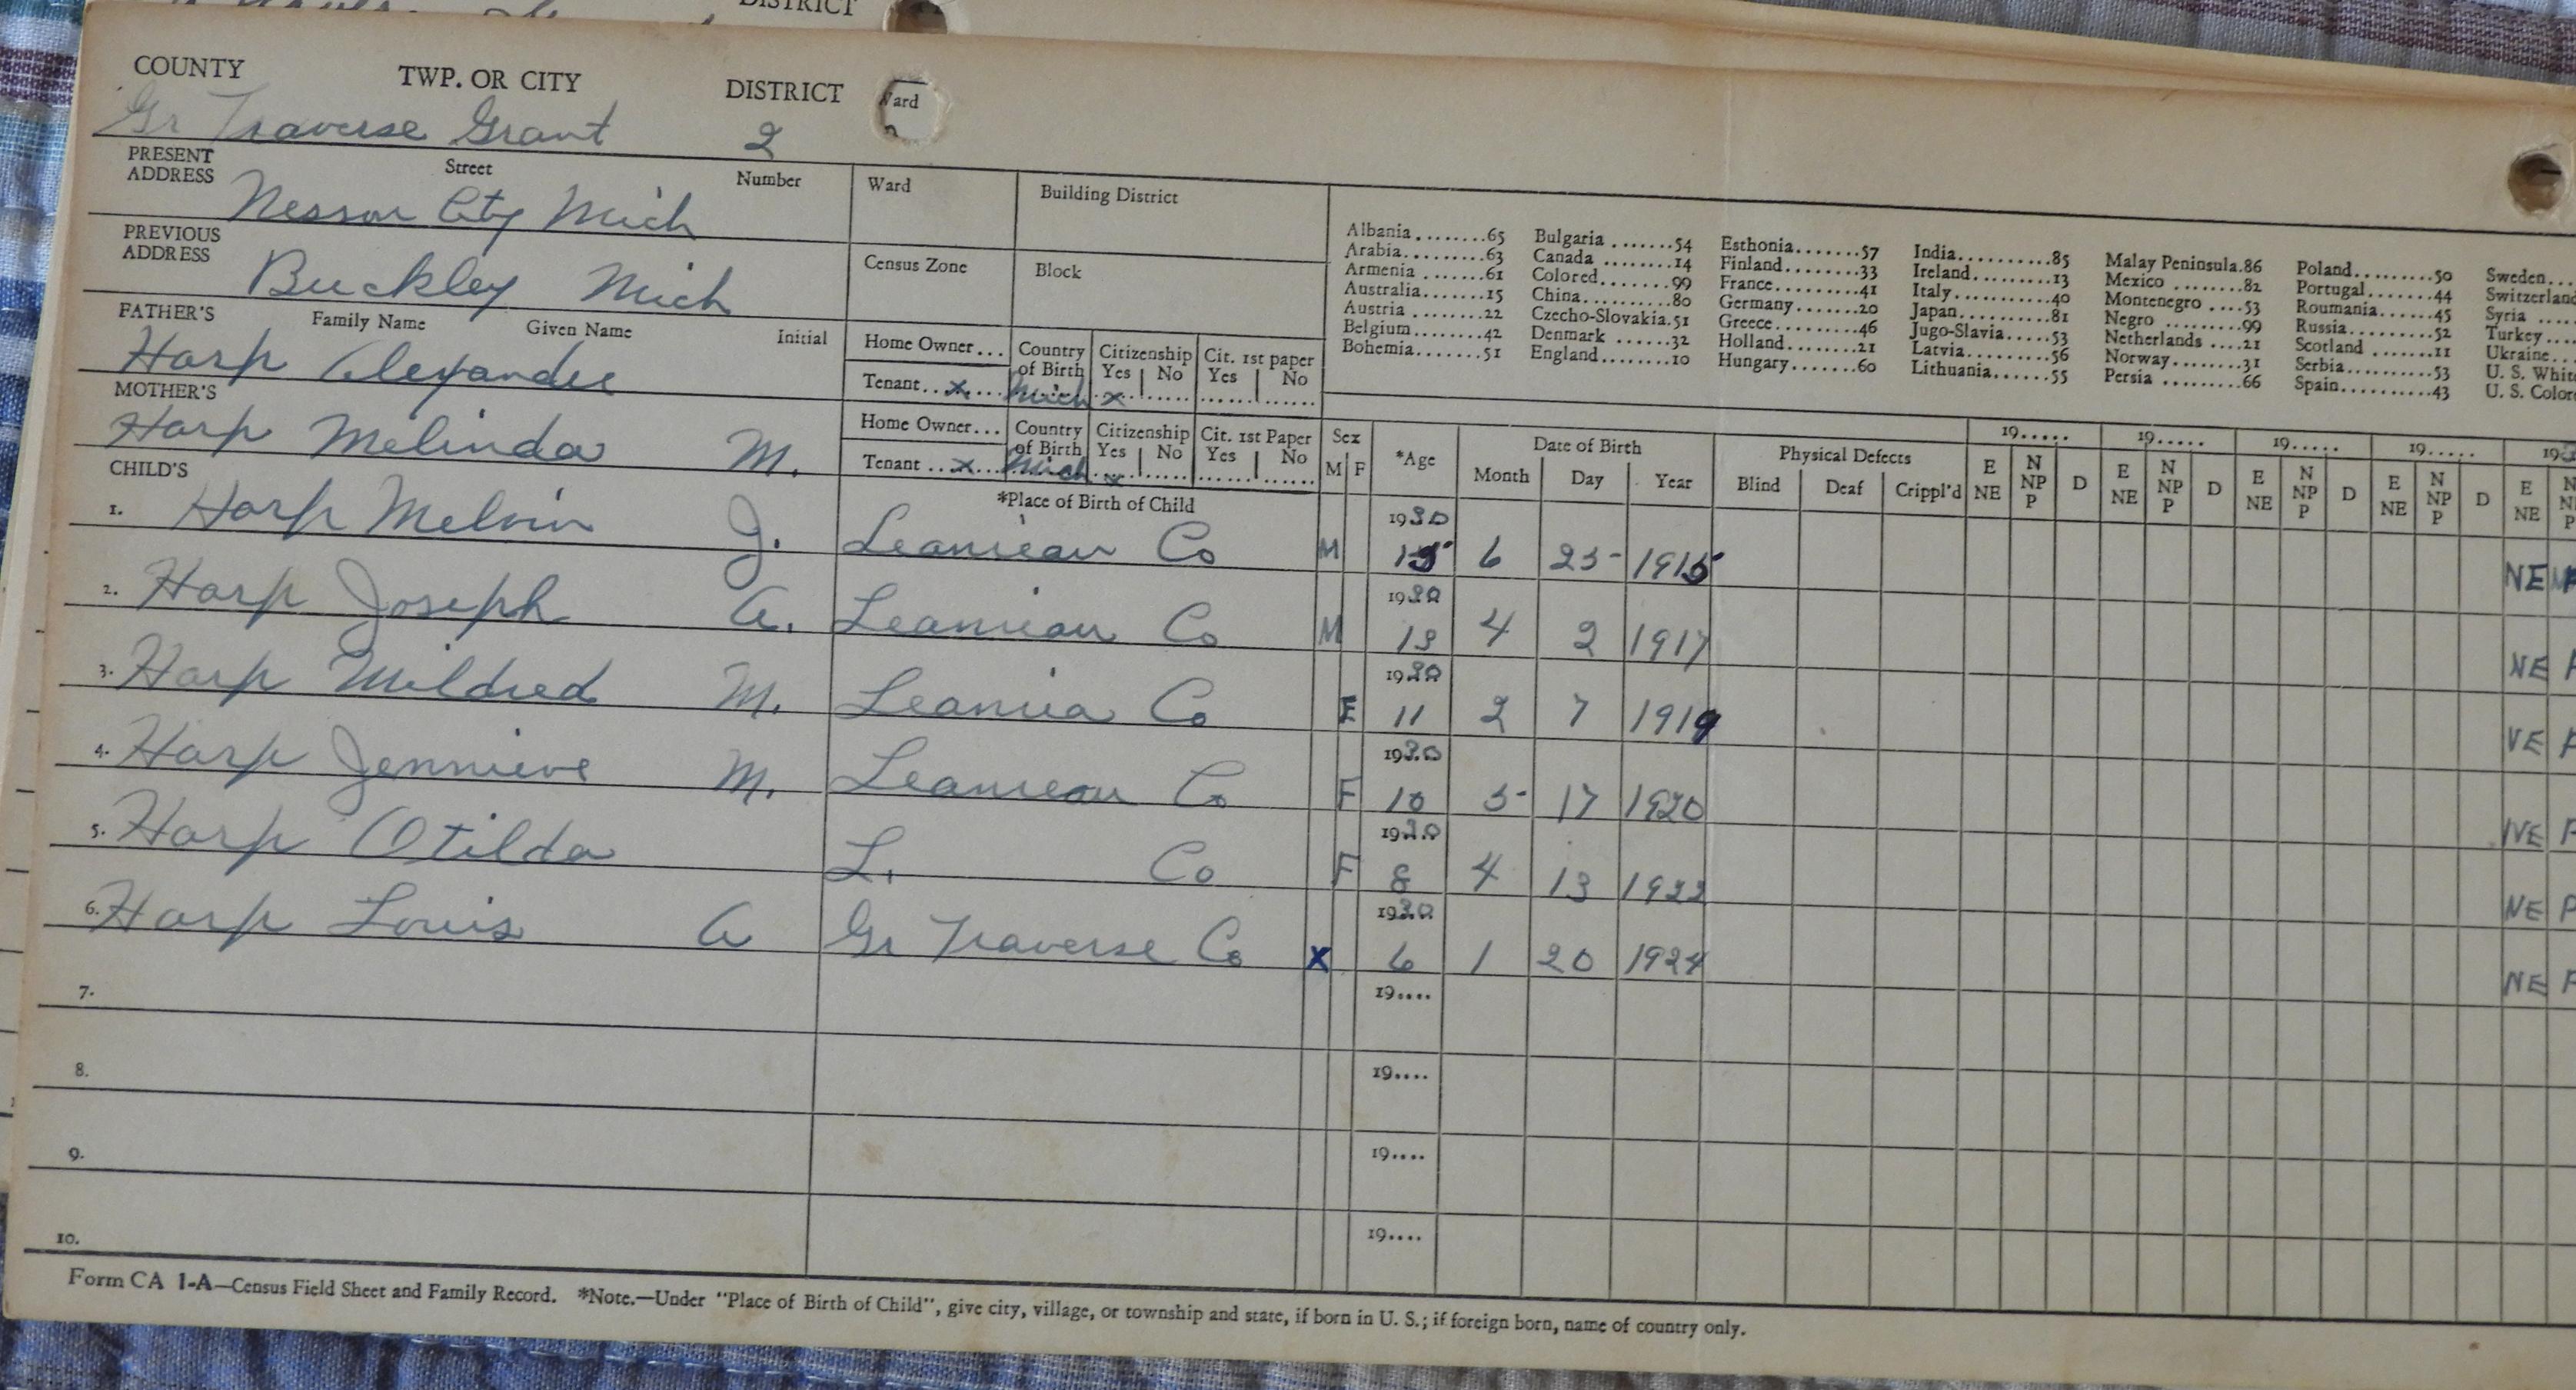 DISTRICT
COUNTY TWP. OR CITY DISTRICT Ward
Gr Traverse Grant 2
PRESENT ADDRESS Street Number Ward Building District
Nessen City Mich
PREVIOUS ADDRESS Census Zone Block
Buckley Mich
Albania........65 Bulgaria.......54 Esthonia.......57 India..........85 Malay Peninsula.86 Poland.........50 Sweden...
Arabia.........63 Canada ........14 Finland........33 Ireland........13 Mexico ........82 Portugal.......44 Switzerland
Armenia .......61 Colored........99 France.........41 Italy..........40 Montenegro ....53 Roumania.......45 Syria ....
Australia......15 China..........80 Germany........20 Japan..........81 Negro .........99 Russia.........52 Turkey....
Austria .......22 Czecho-Slovakia.51 Greece.........46 Jugo-Slavia....53 Netherlands ...21 Scotland ......11 Ukraine...
Belgium........42 Denmark .......32 Holland........21 Latvia.........56 Norway.........31 Serbia.........53 U. S. White
Bohemia........51 England........10 Hungary........60 Lithuania......55 Persia ........66 Spain..........43 U. S. Color
FATHER'S Family Name Given Name Initial Home Owner... Country of Birth Citizenship Yes No Cit. 1st paper Yes No
Harp Alexander Tenant...x... Mich x
MOTHER'S Home Owner... Country of Birth Citizenship Yes No Cit. 1st Paper Yes No
Harp Melinda M. Tenant...x... Mich x
Sex M F *Age Date of Birth Month Day Year Physical Defects Blind Deaf Crippl'd
19..... 19..... 19..... 19.....
E NE N NP P D E NE N NP P D E NE N NP P D E NE N NP P D E NE
CHILD'S *Place of Birth of Child
1. Harp Melvin J. Leanieau Co M 1930 15 6 25 1915 NE
2. Harp Joseph A. Leanieau Co M 1930 13 4 2 1917 NE
3. Harp Mildred M. Leania Co F 1930 11 2 7 1919
4. Harp Jennieve M. Leanieau Co F 1930 10 5 17 1920
5. Harp Otilda L. Co F 1930 8 4 13 1922 NE P
6. Harp Louis A Gr Traverse Co x 1930 6 1 20 1924 NE
7. 19....
8. 19....
9. 19....
10. 19....
Form CA 1-A—Census Field Sheet and Family Record. *Note.—Under "Place of Birth of Child", give city, village, or township and state, if born in U. S.; if foreign born, name of country only.